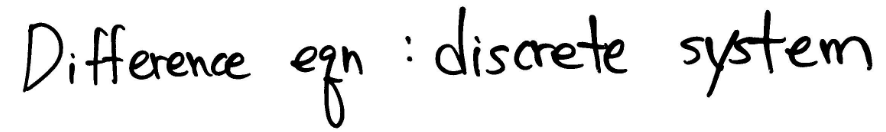 Difference eqn : discrete system